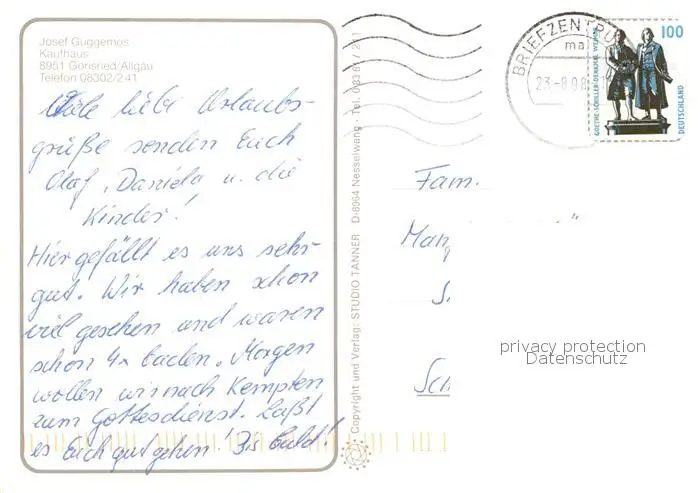 Josef Guggemos
Kaufhaus
8951 Görisried/Allgäu
Telefon 08302/241
Viele liebe Urlaubs-
grüße senden Euch
Olaf, Daniela u. die
Kinder!
Hier gefällt es uns sehr
gut. Wir haben schon
viel gesehen und waren
schon 4x baden. Morgen
wollen wir nach Kempten
zum Gottesdienst. Laßt
es Euch gut gehen! Bis bald!
Copyright und Verlag: STUDIO TANNER D-8964 Nesselwang · Tel. 08361/
BRIEFZENTRU
ma
23-8.98
100
GOETHE-SCHILLER-DENKMAL WEIMAR
DEUTSCHLAND
Fam.
privacy protection
Datenschutz